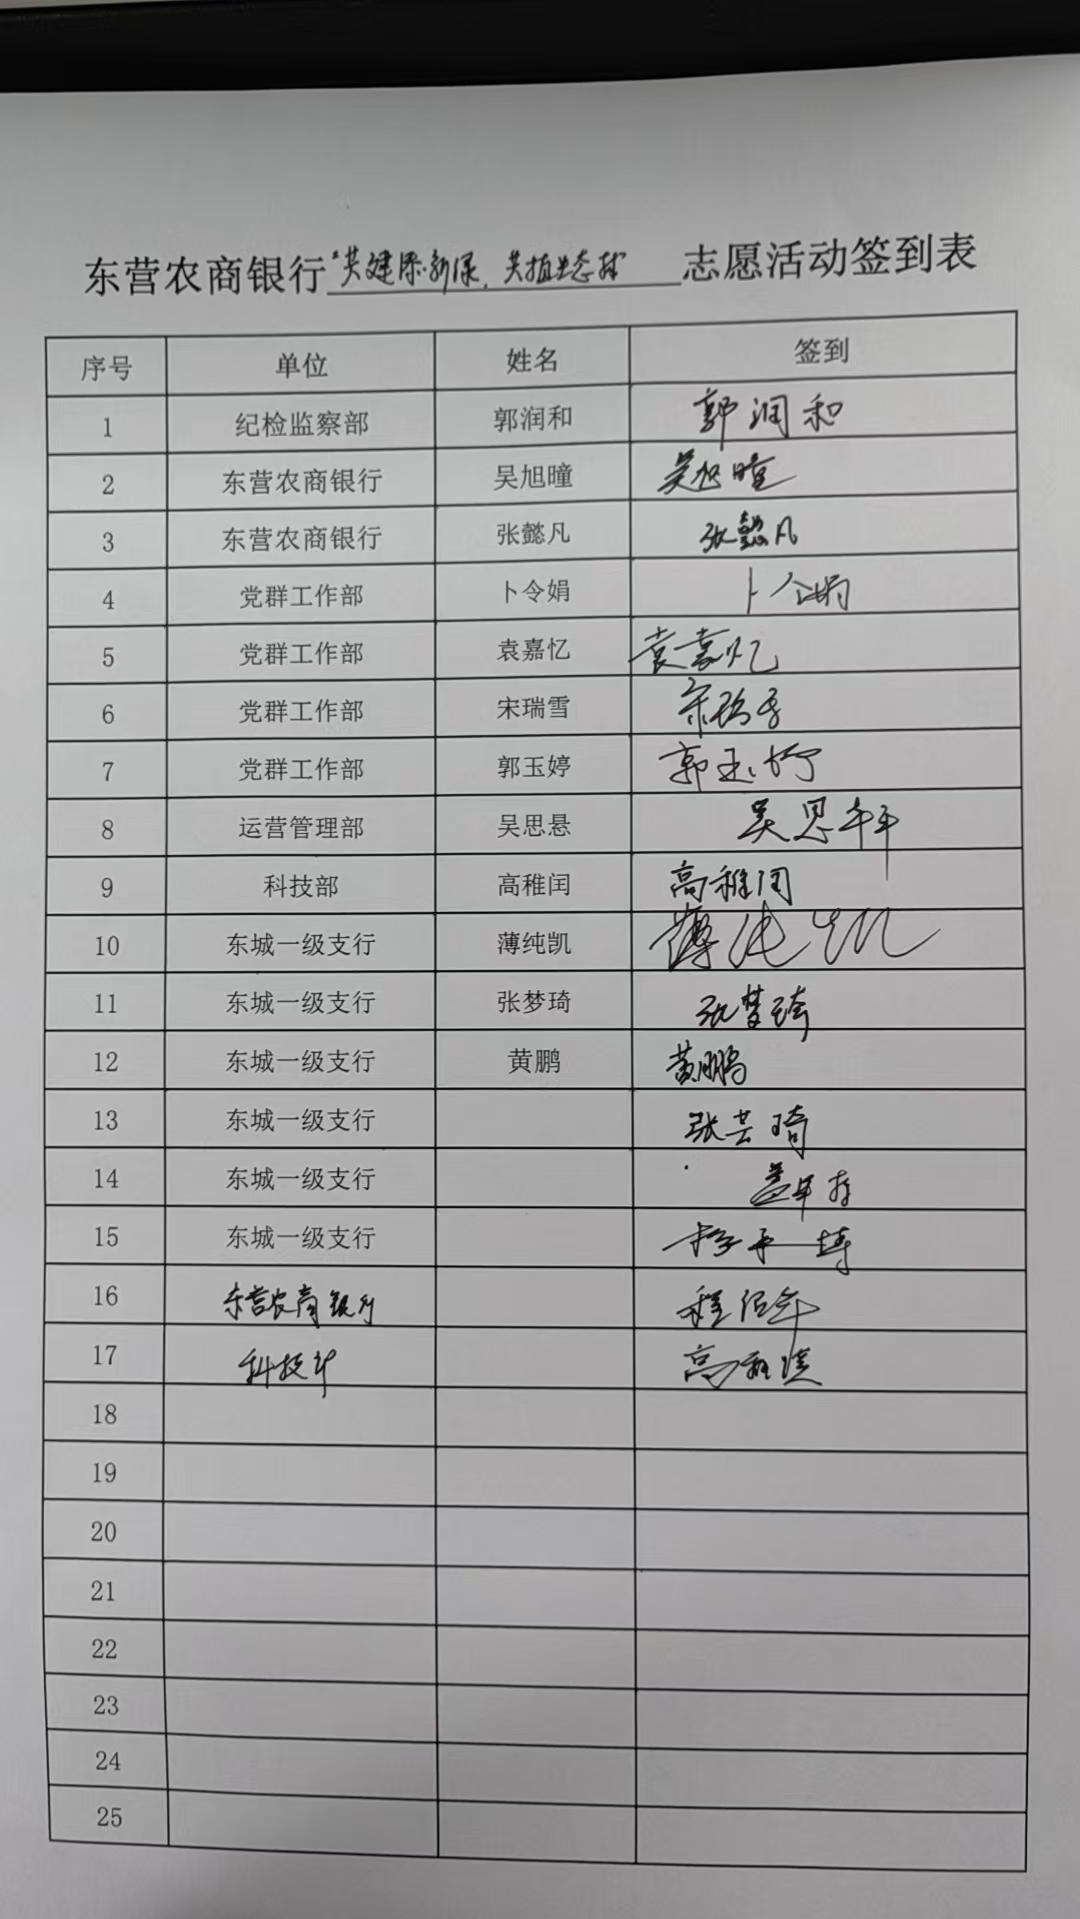 东营农商银行"共建添新绿，共植生态林"志愿活动签到表
序号 单位 姓名 签到
1 纪检监察部 郭润和 郭润和
2 东营农商银行 吴旭曈 吴旭曈
3 东营农商银行 张懿凡 张懿凡
4 党群工作部 卜令娟 卜令娟
5 党群工作部 袁嘉忆 袁嘉忆
6 党群工作部 宋瑞雪 宋瑞雪
7 党群工作部 郭玉婷 郭玉婷
8 运营管理部 吴思悬 吴思
9 科技部 高稚闰 高稚闰
10 东城一级支行 薄纯凯 薄纯凯
11 东城一级支行 张梦琦 张梦琦
12 东城一级支行 黄鹏 黄鹏
13 东城一级支行 张芸琦
14 东城一级支行
15 东城一级支行
16 东营农商银行 程佰年
17 科技部
18
19
20
21
22
23
24
25